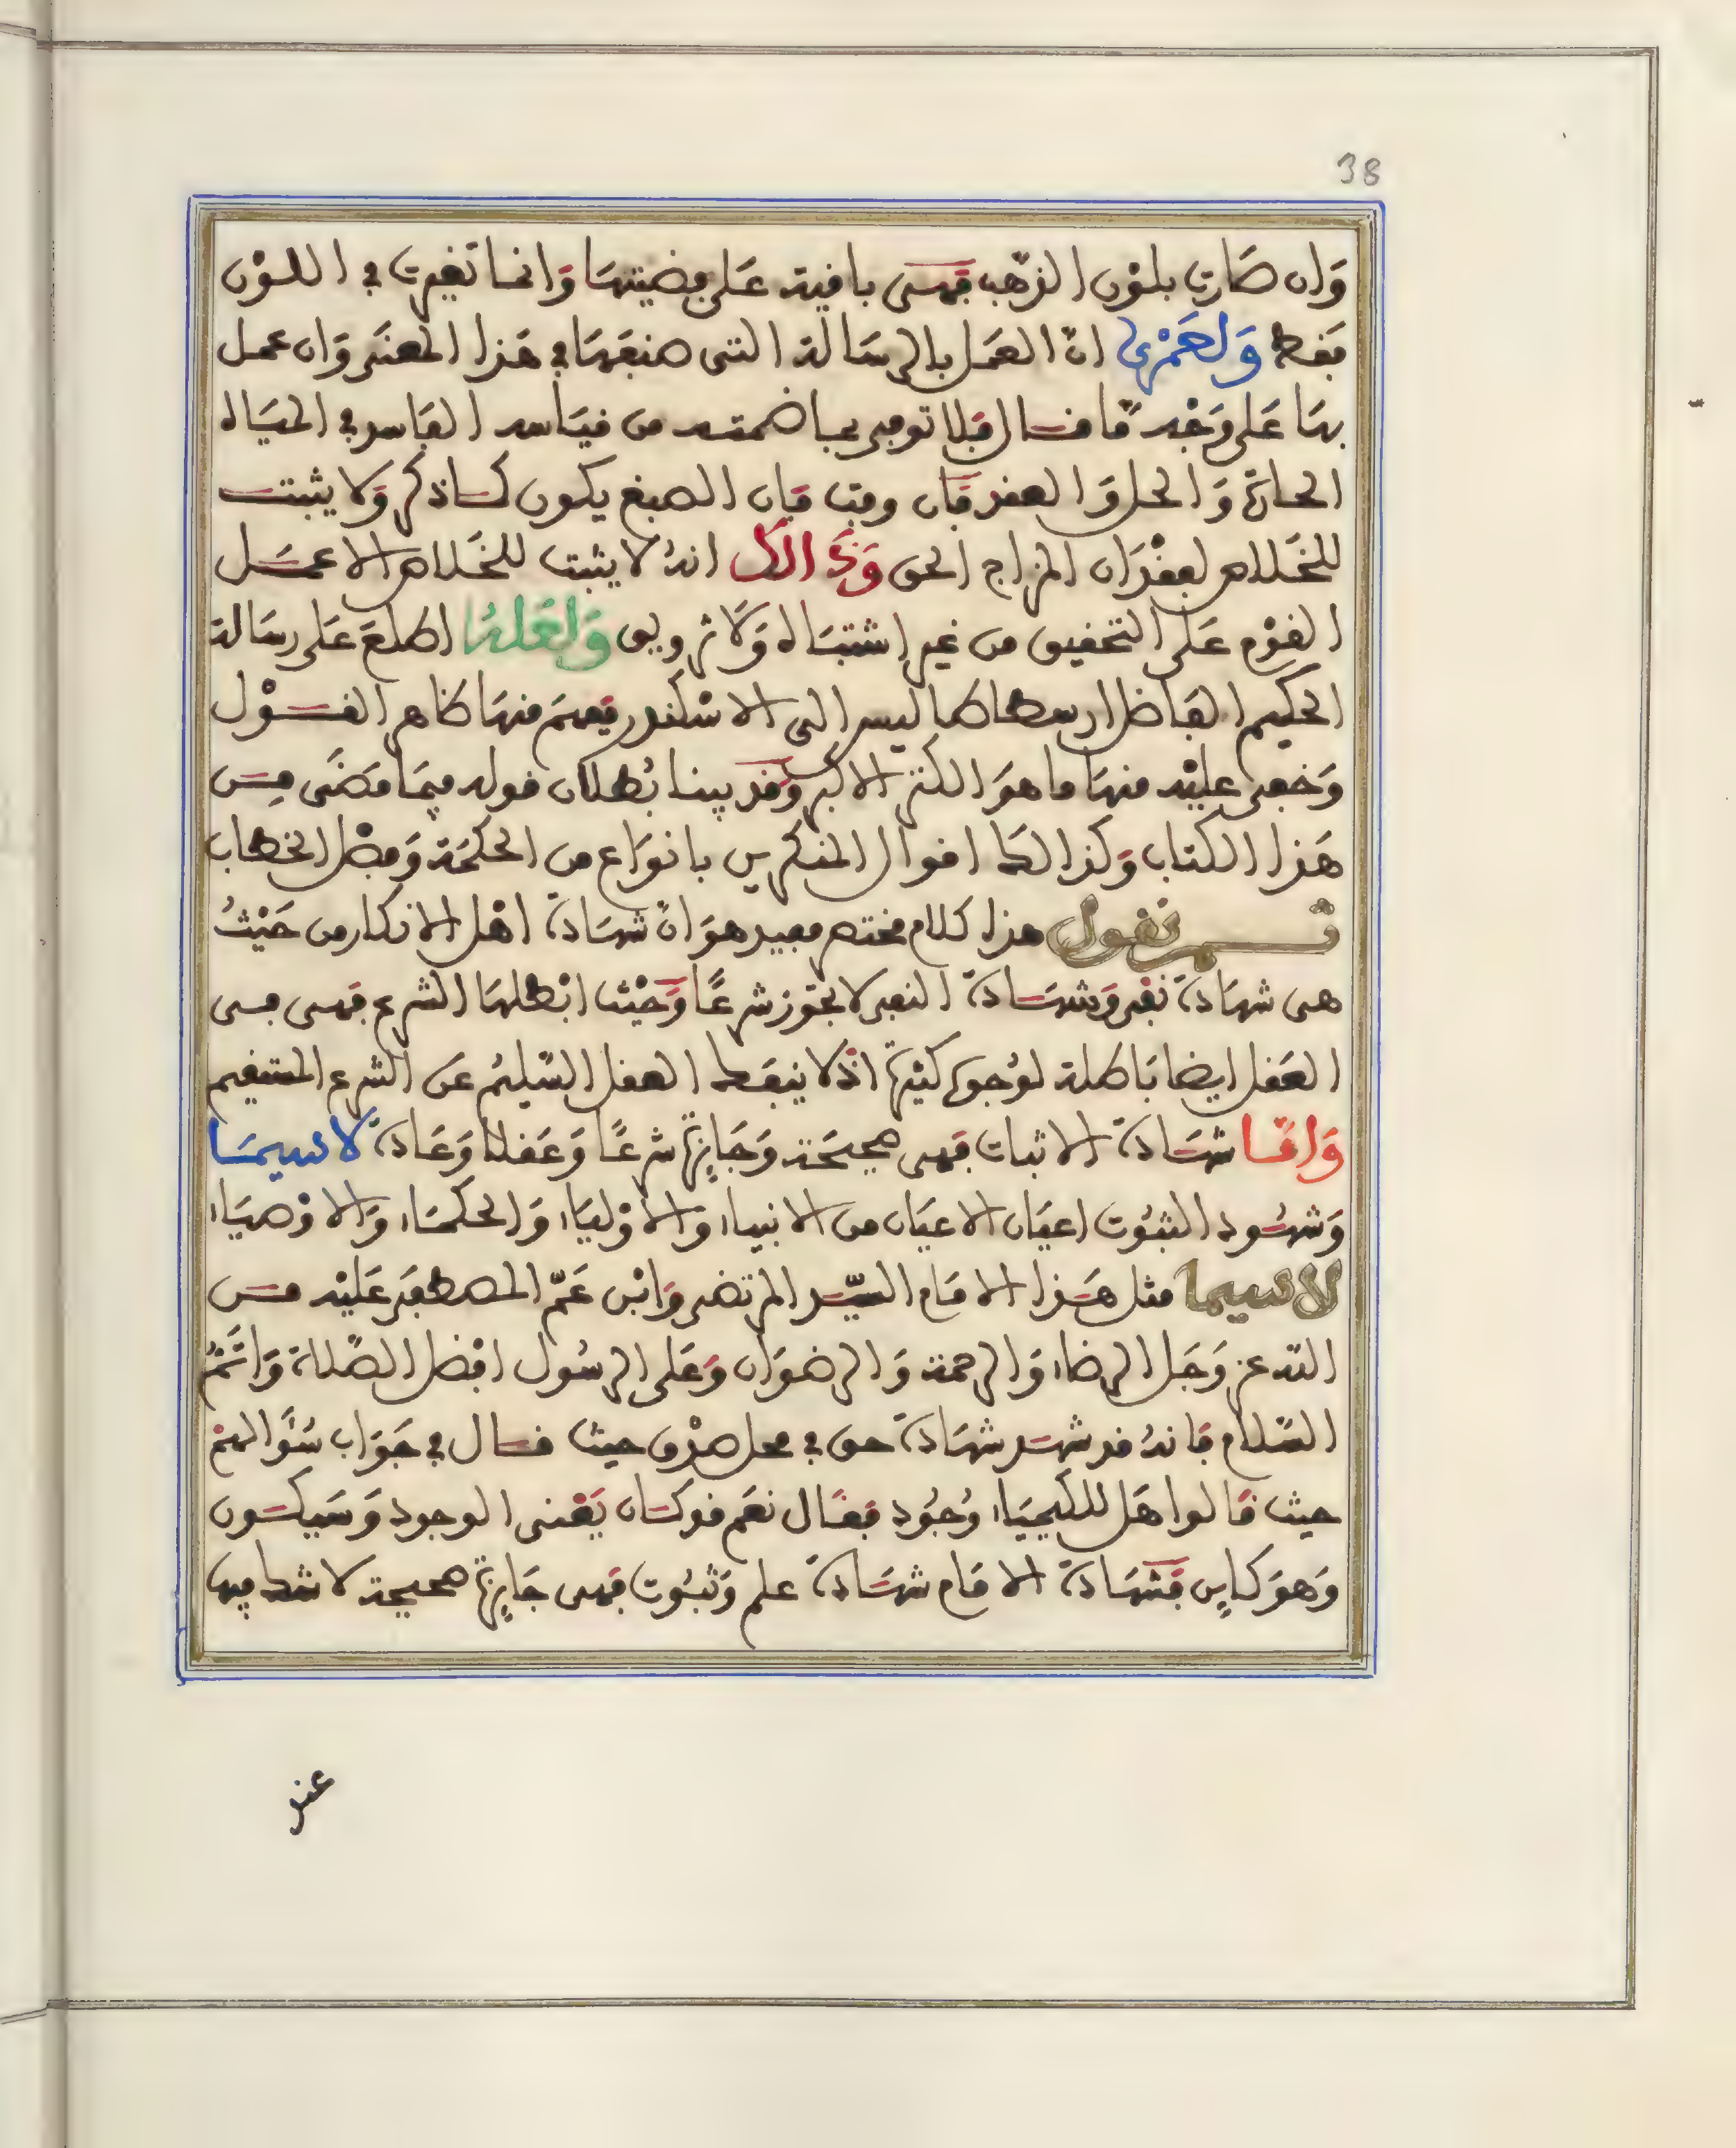 38
وَان صَارت بلوْن الذهب فهى باقية عَلى فضيتهَا وَانما تغيرت في اللوْن
فقط وَلعَمْرِى انّ العَمَل بالرسَالة التى صنفهَا في هَذا المعنَى وَان عمل
بهَا عَلى وَجْه مّا قال فلا توفى بما ضمته من قياسه الفاسد في الميَاه
الحادّة وَالحل وَالعقد فان وفت فان الصبغ يكون كما ذكر وَلا يثبت
للخَلاص لفقْدَان المزاج الحق وَذَالك انهُ لا يثبت للخَلاص الا عمَل
القوْم عَلى التحقيق من غير اشتبَاه وَلا تزويق وَلعَلهُ اطلعَ عَلى رسَالة
الحكيم الفاضل ارسطاطاليس الى الاسْكندر ففهمَ منهَا ظاهر القوْل
وَخفى عليْه منهَا ما هوَ الكنز الاكبر وَقد بينا بُطلان قوله فيمَا مَضَى مِن
هَذا الكتاب وَكذالك اقوال المنكرين بانوَاع من الحكمَة وَفصْل الخطاب
ثم نقول هذا كلام مختصر مفيد هوَ انّ شهَادة اهْل الانكار من حَيْثُ
هى شهَادة نفى وَشهَادة النفى لا تجوّز شرعًا وَحَيْث ابْطلهَا الشرع فهى فى
العَقل ايضا بَاطلة لوُجوه كثيرة اذ لا ينفك العقل السّليمُ عَن الشرع المستقيم
وَامّا شهَادة الاثبات فهى صحيحَة وَجَايزة شرعًا وَعَقلا وَعَادة لا سيمَا
وَشهُود الثبُوت اعيَان الاعيَان من الانبياء وَالاوْليَاء وَالحكمَاء وَالاوْصيَاء
لا سيما مثل هَذا الامَام السّيّد المرتضى وَابْن عَمّ المصطفَى عَليْه من
الله عز وَجَل الرضاء وَالرحمة وَالرضوَان وَعَلى الرسُول افضل الصّلاة وَاتَمُّ
السّلام فانهُ قد شهدَ شهَادة حق في محل صدْق حيث قال في جَوَاب سُؤَالهمْ
حيث قالوا هَل للكيميَاء وُجُود فقال نعَم قد كان يَعْنى الوجود وَسَيكون
وَهوَ كاين فشهَادة الامَام شهَادة علم وَثبُوت فهى جَايزة صحيحة لا شك فيها
عند